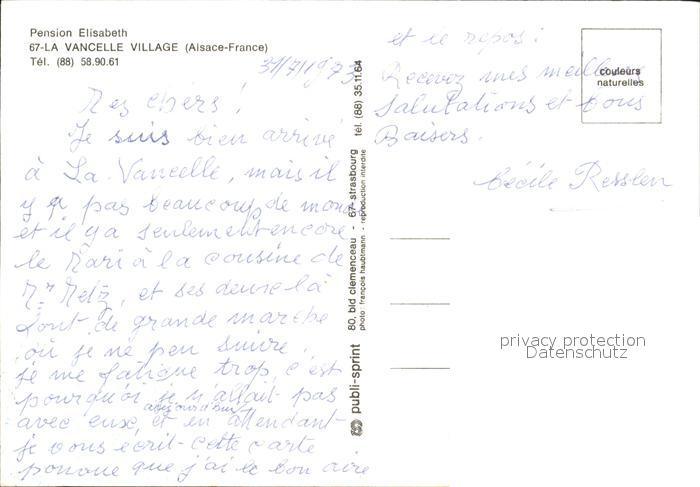 Pension Elisabeth
67-LA VANCELLE VILLAGE (Alsace-France)
Tél. (88) 58.90.61
31/7/1973
Mes chers !
Je suis bien arrivé
à La Vancelle, mais il
y a pas beaucoup de monde
et il y a seulement encore
le Mari à la cousine de
Mr Metz, et ses deux là
font de grande marche
où je ne peu suivre,
je me fatigue trop, c'est
pourquoi je n'allait pas
aujourd'hui
avec eux, et en attendant
je vous ecrit cette carte
ponoue que j'ai le bon aire
et le repos !
Recevez mes meilleures
Salutations et bons
Baisers.
Cécile Resslen
couleurs
naturelles
publi-sprint 80, bld clemenceau - 67-strasbourg tél. (88) 35.11.64
photo françois haubtmann - reproduction interdite
privacy protection
Datenschutz